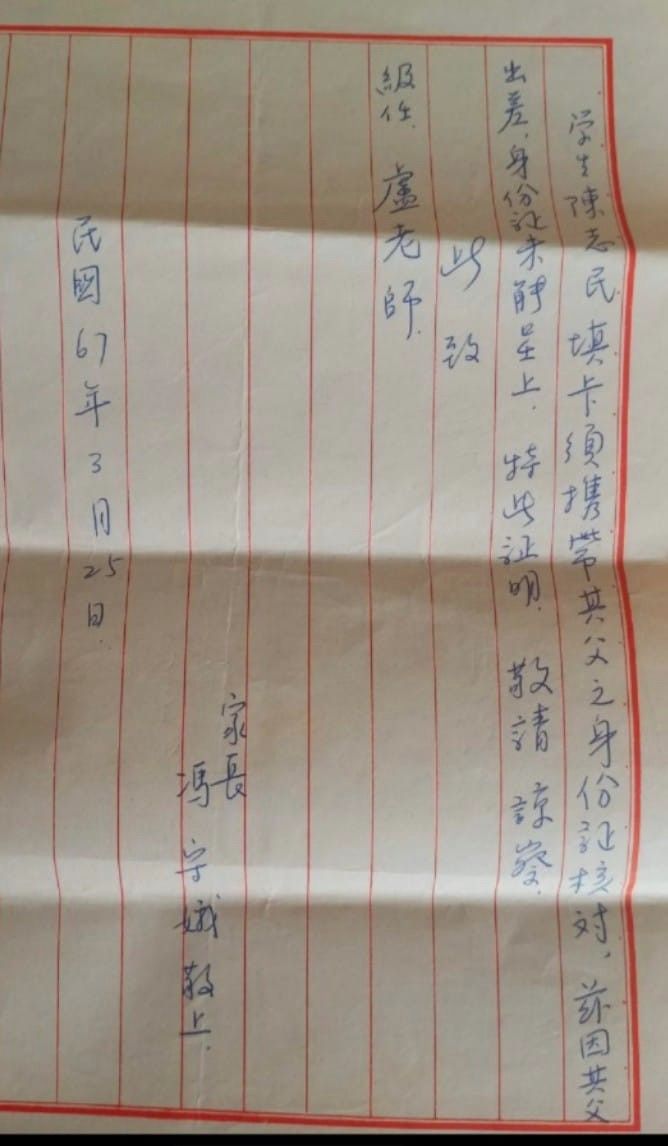 学生陳志民填卡須携帶其父之身份证核对，茲因其父
出差，身份证未能呈上，特此证明，敬請諒察。
此致
級任 盧老師
家長
馮守娥敬上
民國67年3月25日